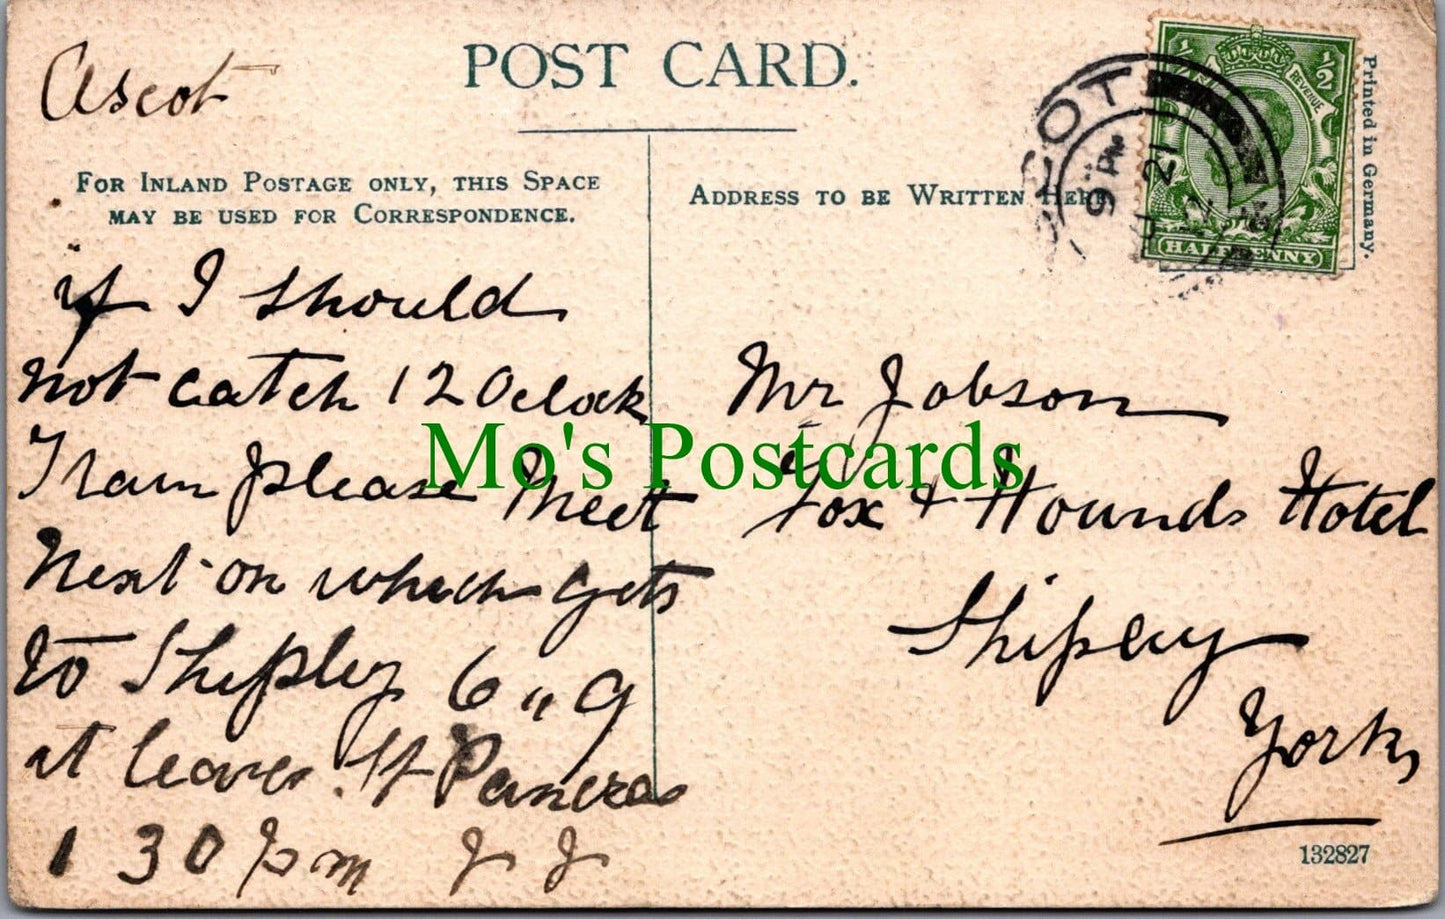 Ascot
POST CARD.
FOR INLAND POSTAGE ONLY, THIS SPACE
MAY BE USED FOR CORRESPONDENCE.
ADDRESS TO BE WRITTEN HERE
Printed in Germany.
1/2 1/2
REVENUE
HALFPENNY
COT
9 PM
21
if I should
not catch 12 Oclock
Train please Meet
Next on which gets
to Shipley 6 " 9
it leaves St Pancras
1 30 pm J J
Mr Jobson
Fox & Hounds Hotel
Shipley
Yorks
132827
Mo's Postcards